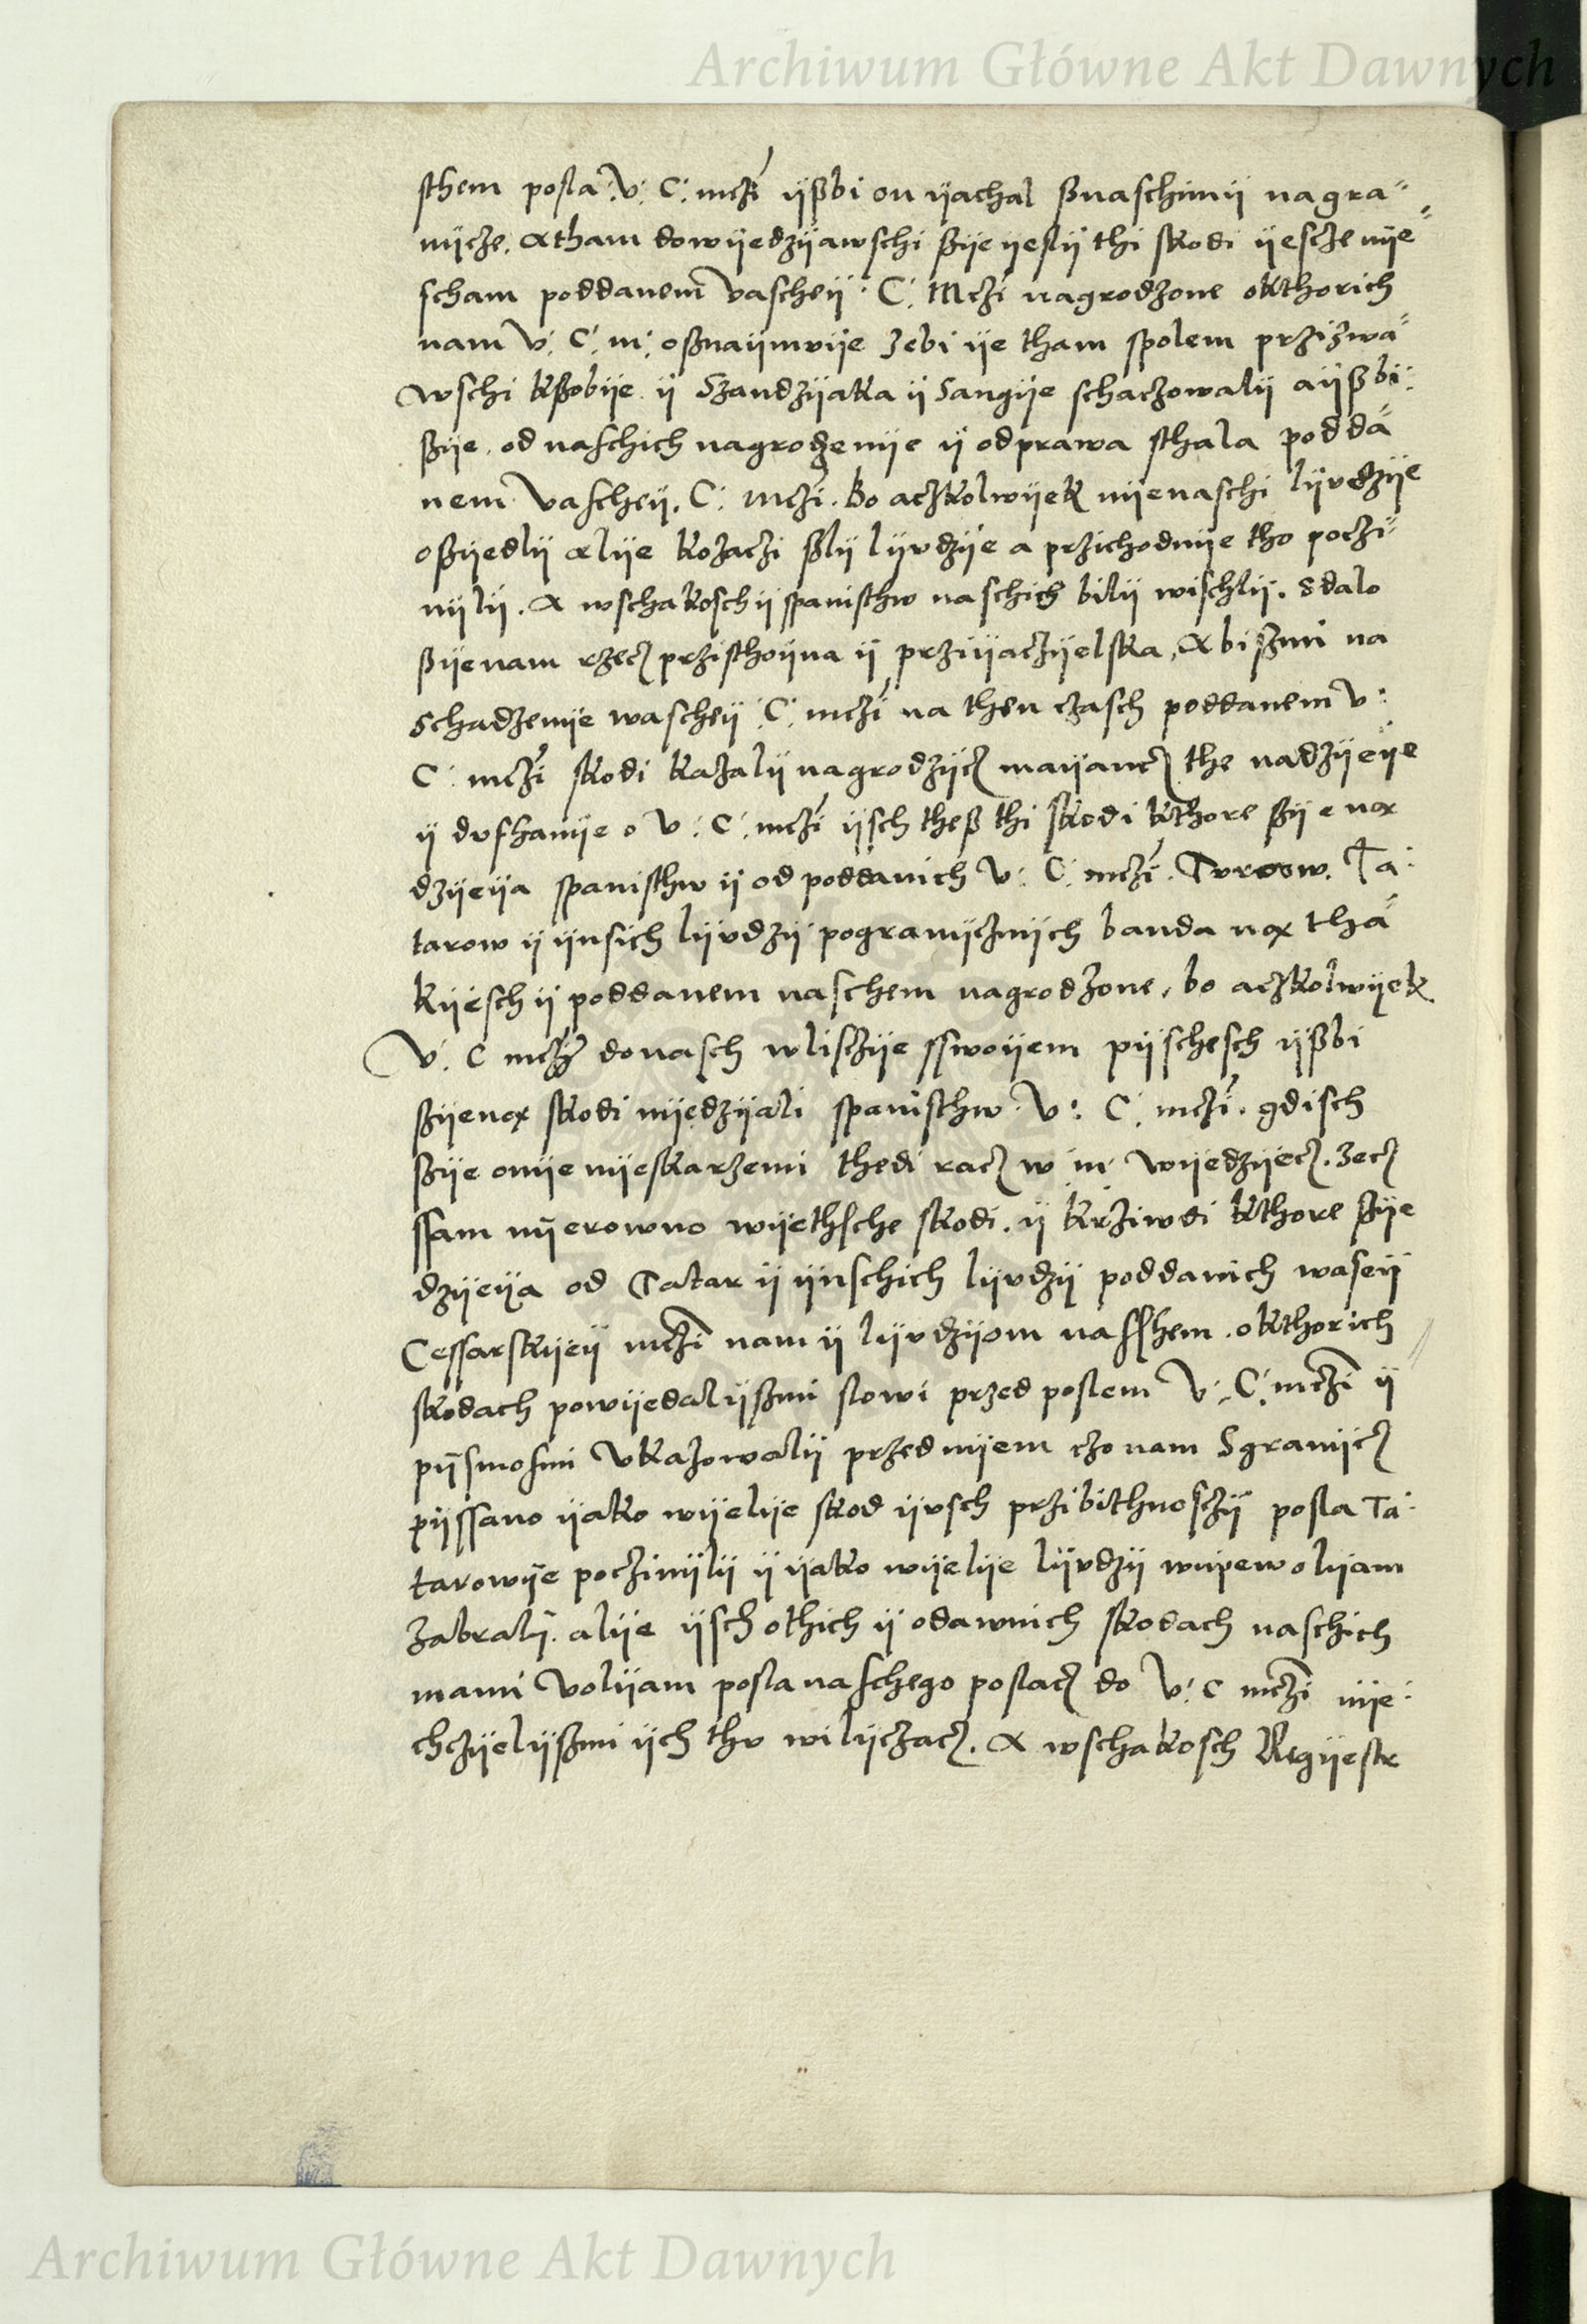 Archiwum Główne Akt Dawnych
sthem posla V: C: mczi ÿßbi on ÿachal ßnaschimÿ nagra=
nÿcze. A tham dowÿedzÿawschi ßÿe ÿeslÿ thi skodi ÿescze nÿe=
scham poddanem vascheÿ C: Mczi nagrodzone okthorich
nam V: C: m: oßnaÿmvÿe zebi ÿe tham spolem prziswa=
wschi kßobÿe ÿ Szandzÿaka ÿ Sangÿe schaczowalÿ aÿßbi:
ßÿe od naschich nagrodzenÿe ÿ odprawa sthala podda=
nem Vascheÿ. C: Mczi. Bo aczkolwÿek nÿenaschi lÿvdzÿe
oßÿedlÿ alÿe kozaczi ßlÿ lÿvdzÿe a przichodnÿe tho poczi=
nÿlÿ. A wschakoschÿ spanisthw naschich bilÿ wischlÿ. Sdalo
ßÿenam rzecz przisthoÿna ÿ przÿÿaczÿelska, Abißmi na
Schadzenÿe wascheÿ C: mczi na then czasch poddanem V:
C: mczi skodi kazalÿ nagrodzÿcz maÿancz the nadzÿeÿe
ÿ dvfhanÿe o V: C: mczi ÿsch theß thi skodi kthore ßÿe na
dzÿeÿa spanisthw ÿ od poddanich V: C: mczi. Tvrcow. Ta:
tarow ÿ ÿnsich lÿvdzÿ pogranÿcznÿch banda na tha=
kÿesch ÿ poddanem naschem nagrodzone, bo aczkolwÿek
V: C mcz donasch wlisczÿe sswoÿem pÿschesch ÿßbi
ßÿena skodi nÿedzÿali spanisthw V: C: mczi. gdisch
ßÿe onÿe nÿeskarzemi thedi racz w m wÿedzÿecz. zecz
ssam nÿerowno wÿethsche skodi. ÿ krziwdi kthore ßÿe
dzÿeÿa od Tatar ÿ ÿnschich lÿvdzÿ poddanich waseÿ
Cessarskÿeÿ mczi nam ÿ lÿvdzÿom nasshem. okthorich
skodach powÿedalÿßmi slowi przed poslem V: C: mczi ÿ
pÿsmosmi Vkazowalÿ przednÿem czo nam Sgranÿcz
pÿssano ÿako wÿelÿe skod ÿvsch przibithnosczÿ posla Ta:
tarowÿe poczinÿlÿ ÿ ÿako wÿelÿe lÿvdzÿ wnÿewolÿam
zabralÿ. alÿe ÿsch othich ÿ odawnich skodach naschich
mami Volÿam posla naschego poslacz do V: C mczi nÿe:
chczÿelÿßmi ÿch thv wilÿczacz. A wschakosch Regÿestr
Archiwum Główne Akt Dawnych